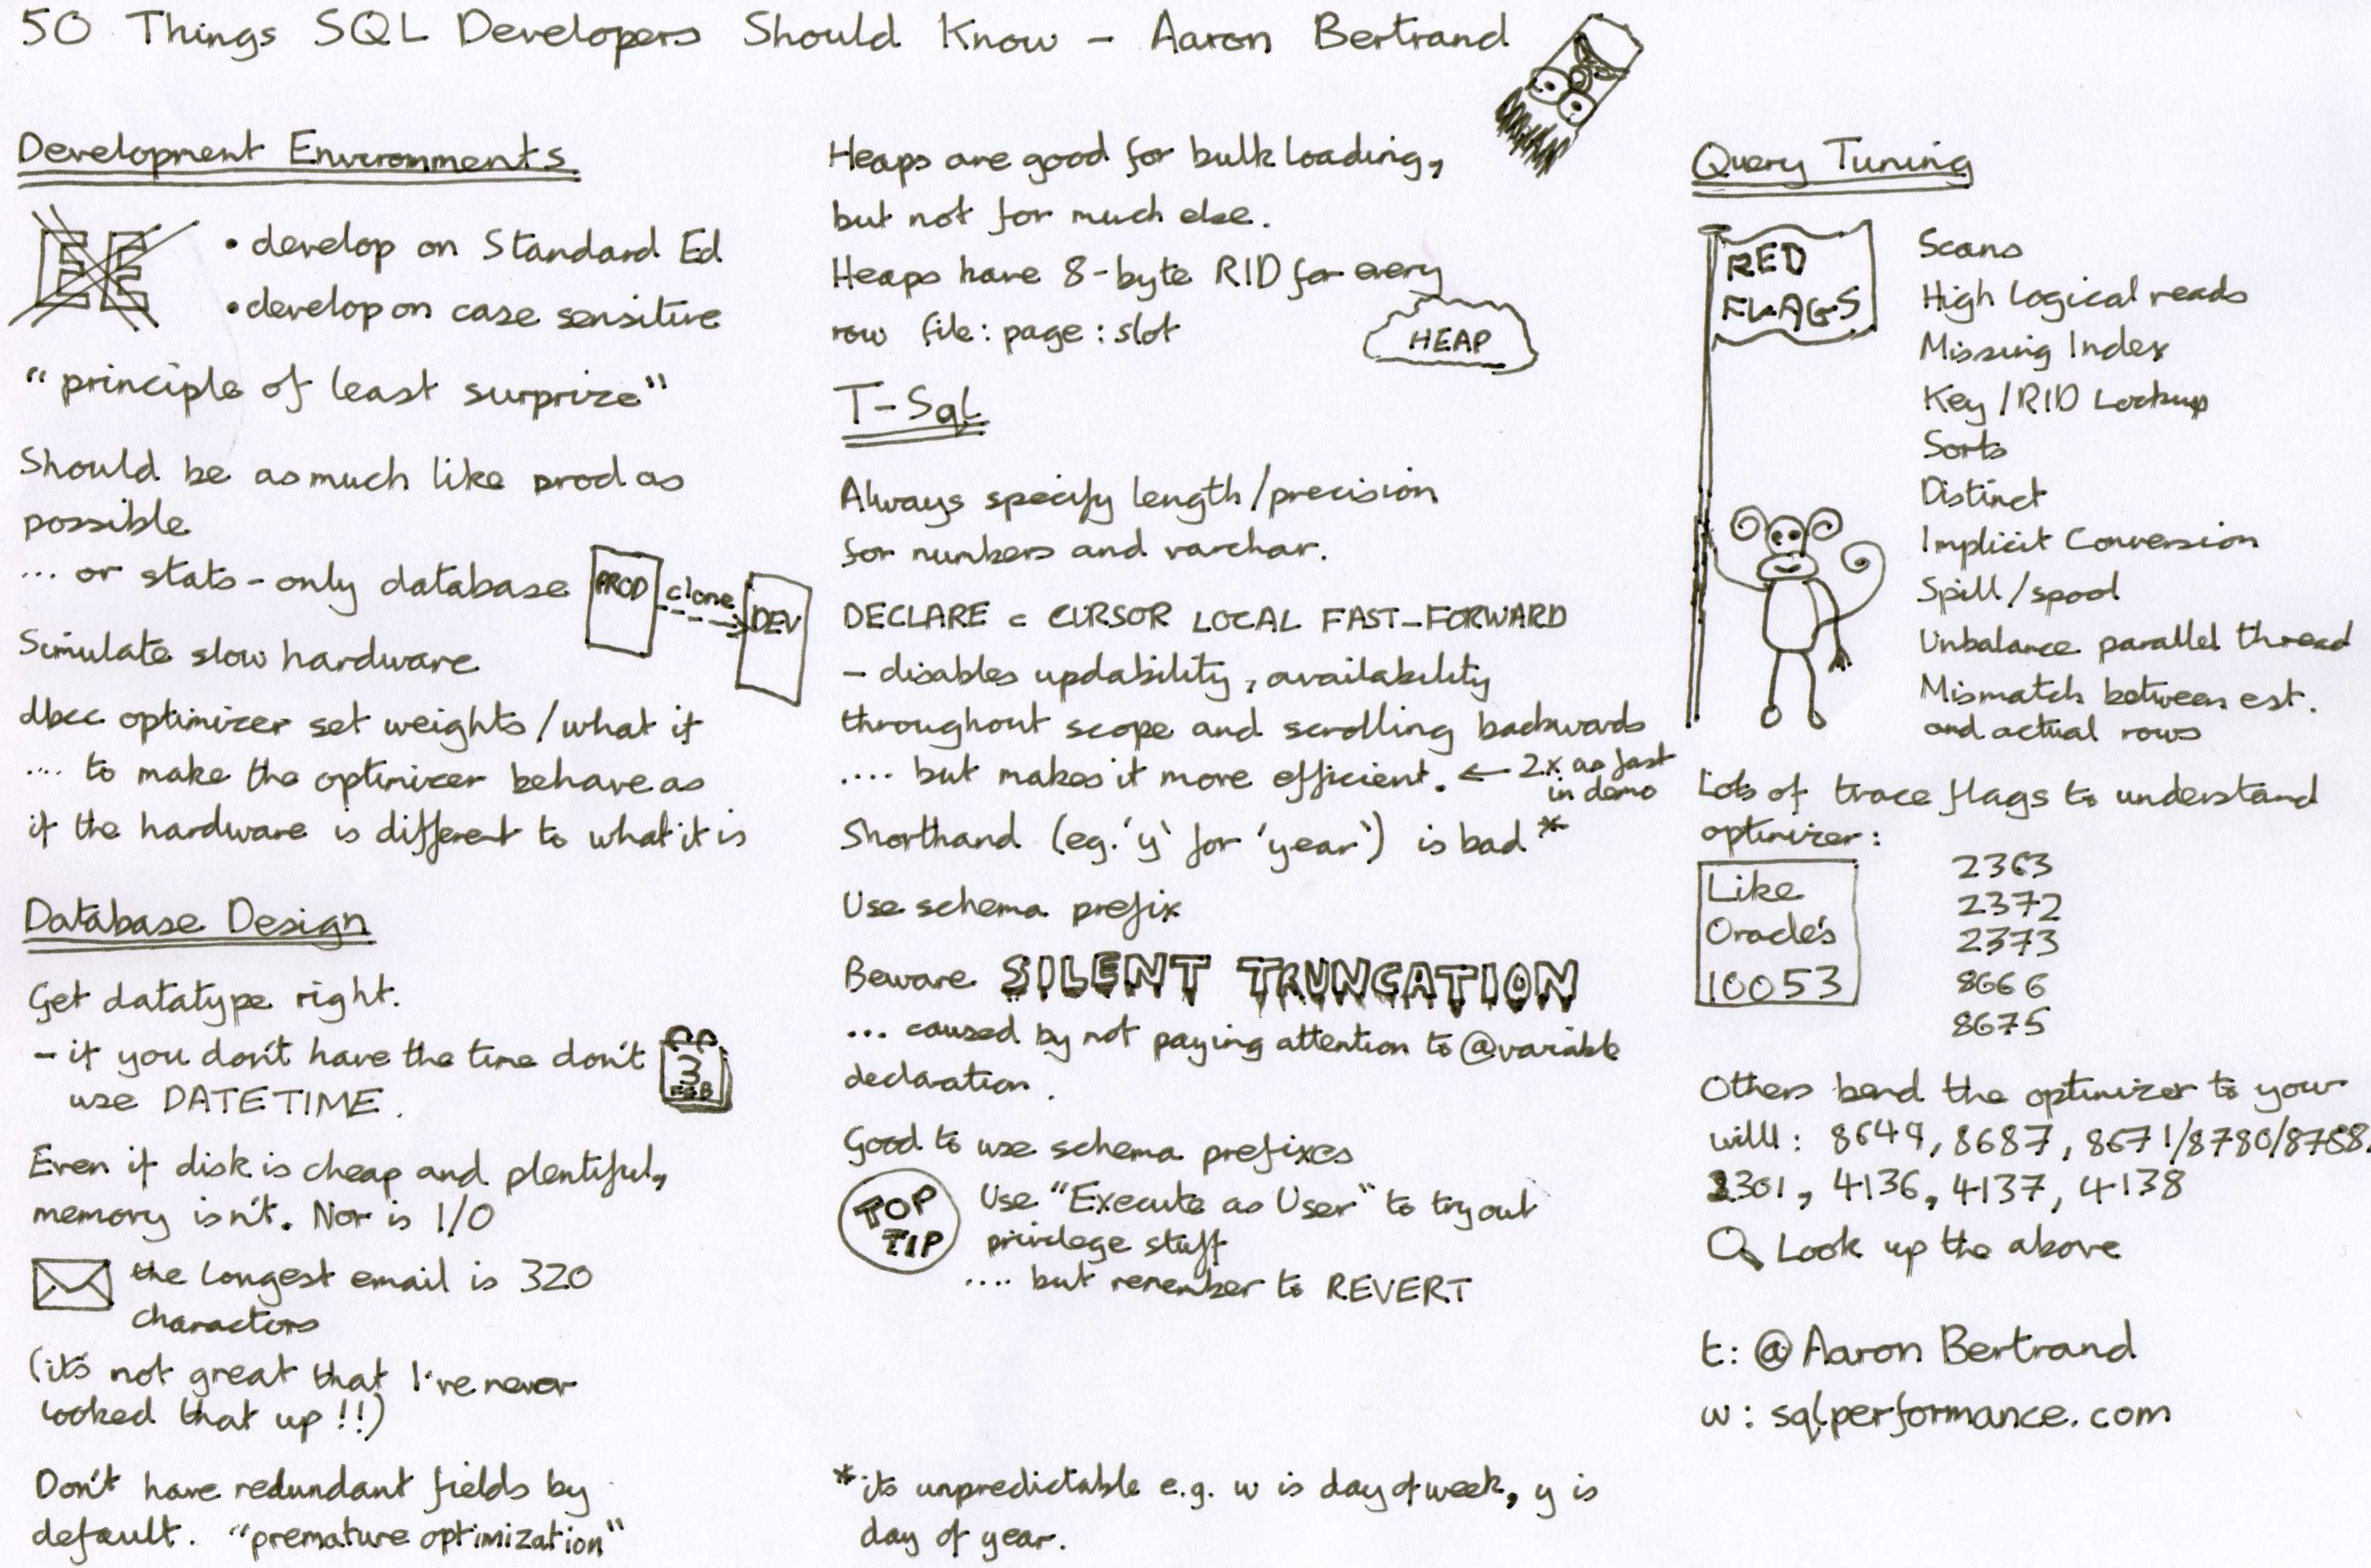 50 Things SQL Developers Should Know - Aaron Bertrand
Development Environments
EE
• develop on Standard Ed
• develop on case sensitive
"principle of least surprize"
Should be as much like prod as
possible
... or stats-only database
PROD clone DEV
Simulate slow hardware
dbcc optimizer set weights/what if
.... to make the optimizer behave as
if the hardware is different to what it is
Database Design
Get datatype right.
- if you don't have the time don't
use DATETIME.
3
FEB
Even if disk is cheap and plentiful,
memory isn't. Nor is I/O
the longest email is 320
characters
(it's not great that I've never
looked that up!!)
Don't have redundant fields by
default. "premature optimization"
Heaps are good for bulk loading,
but not for much else.
Heaps have 8-byte RID for every
row file:page:slot
HEAP
T-Sql
Always specify length/precision
for numbers and varchar.
DECLARE c CURSOR LOCAL FAST_FORWARD
- disables updability, availability
throughout scope and scrolling backwards
.... but makes it more efficient. ← 2x as fast
in demo
Shorthand (eg. 'y' for 'year') is bad *
Use schema prefix
Beware SILENT TRUNCATION
... caused by not paying attention to @variable
declaration.
Good to use schema prefixes
TOP
TIP
Use "Execute as User" to try out
privilege stuff
.... but remember to REVERT
* its unpredictable e.g. w is day of week, y is
day of year.
Query Tuning
RED
FLAGS
Scans
High logical reads
Missing Index
Key/RID Lookup
Sorts
Distinct
Implicit Conversion
Spill/spool
Unbalance parallel thread
Mismatch between est.
and actual rows
Lots of trace flags to understand
optimizer:
Like
Oracle's
10053
2363
2372
2373
8666
8675
Others bend the optimizer to your
will: 8649, 8687, 8671/8780/8788.
2301, 4136, 4137, 4138
Look up the above
t: @AaronBertrand
w: sqlperformance.com